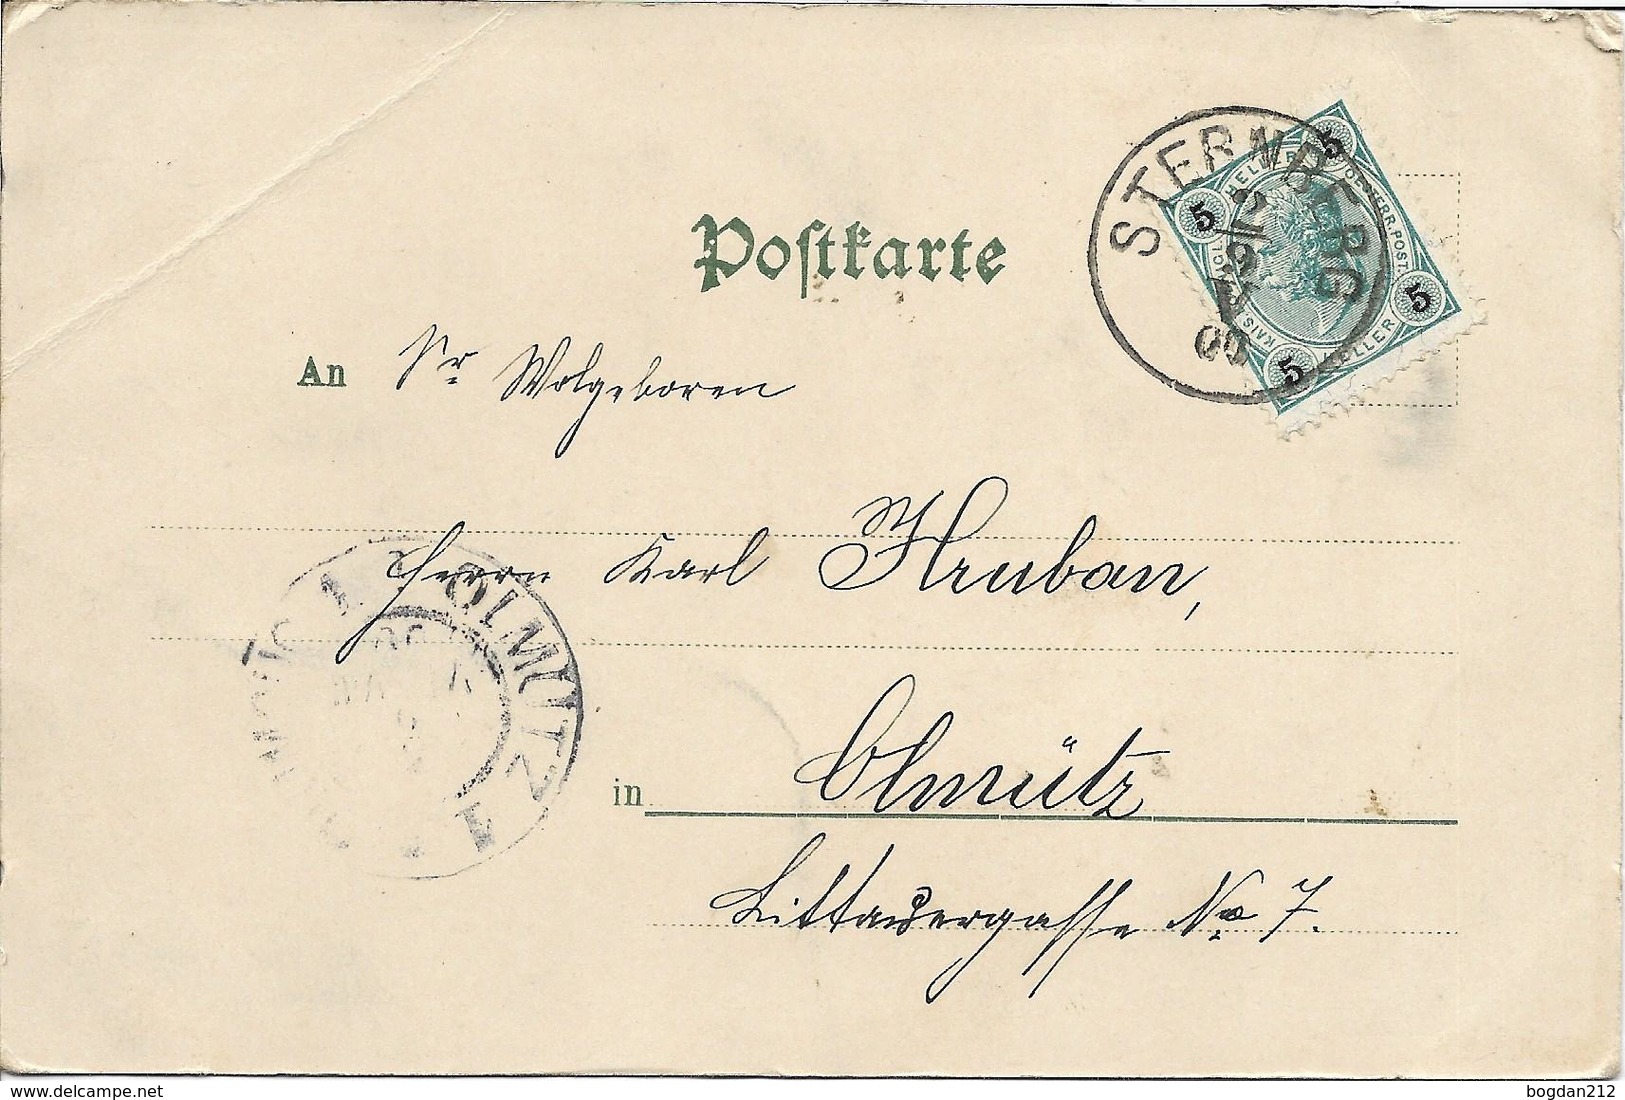 STERNBERG
2/9
00
5 HELLER 5
OESTERR. POST.
5 HELLER 5
Postkarte
An Sr. Wolgeboren
Herrn Karl Hruban,
OLMÜTZ 1
in Olmütz
Littauergasse No 7.
www.delcampe.net
bogdan212